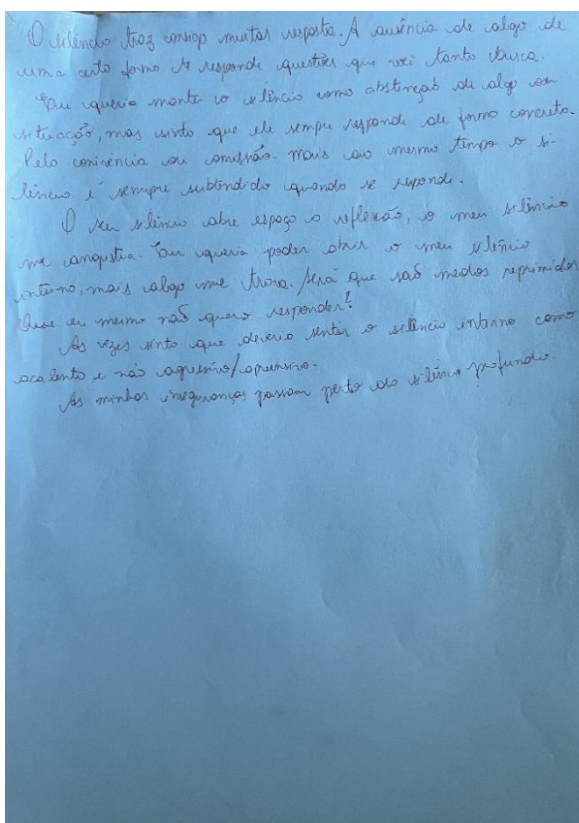 O silêncio traz consigo muitas resposta. A ausência de algo de
uma certo forma te responde questões que você tanto busca.
Eu queria manter o silêncio como abstenção de algo ou
situação, mas sinto que ele sempre responde de forma concreta.
Pela conivência ou omissão. mais ao mesmo tempo o si-
lêncio é sempre subtendido quando se responde.
O seu silêncio abre espaço a reflexão, o meu silêncio
me angustia. Eu queria poder abrir o meu silêncio
interno, mais algo me trava. Será que são medos reprimidos
Que eu mesmo não quero responder?
As vezes sinto que deveria sentir o silêncio interno como
acalento e não agressivo/opressivo.
As minhas inseguranças passam perto do silêncio profundo.